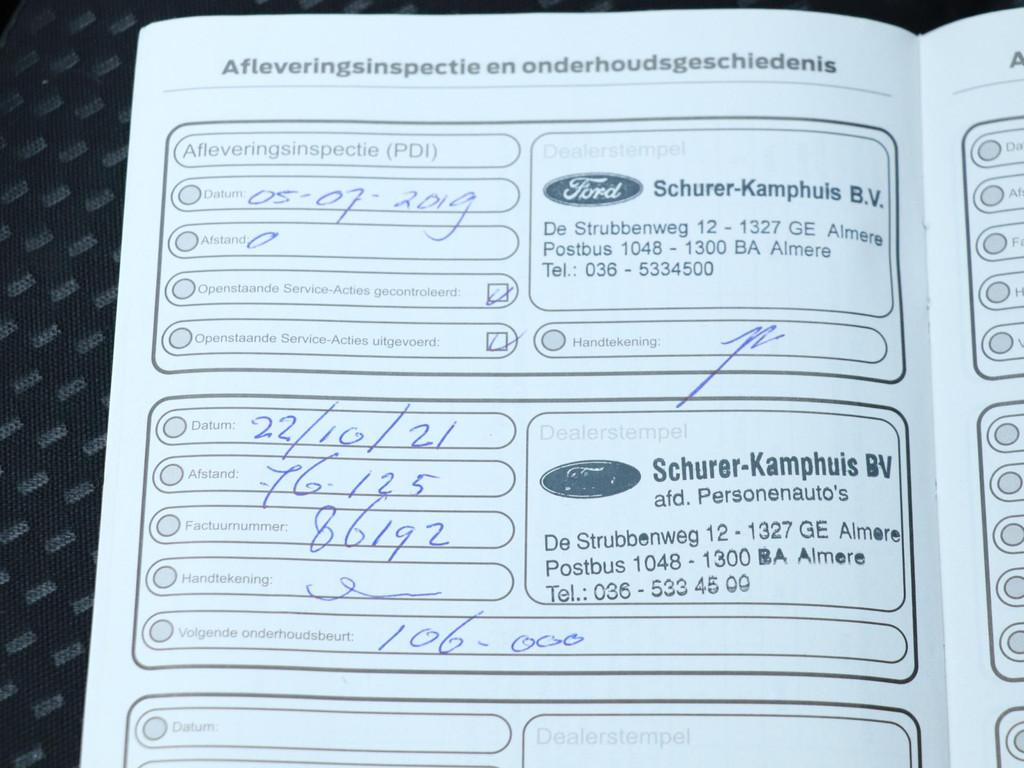 Afleveringsinspectie en onderhoudsgeschiedenis
Afleveringsinspectie (PDI)
Datum: 05-07-2019
Afstand: 0
Openstaande Service-Acties gecontroleerd:
Openstaande Service-Acties uitgevoerd:
Dealerstempel
Ford Schurer-Kamphuis B.V.
De Strubbenweg 12 - 1327 GE Almere
Postbus 1048 - 1300 BA Almere
Tel.: 036 - 5334500
Handtekening:
Datum: 22/10/21
Afstand: 76.125
Factuurnummer: 86192
Handtekening:
Volgende onderhoudsbeurt: 106-000
Dealerstempel
Ford Schurer-Kamphuis BV
afd. Personenauto's
De Strubbenweg 12 - 1327 GE Almere
Postbus 1048 - 1300 BA Almere
Tel.: 036 - 533 45 00
Datum:
Dealerstempel